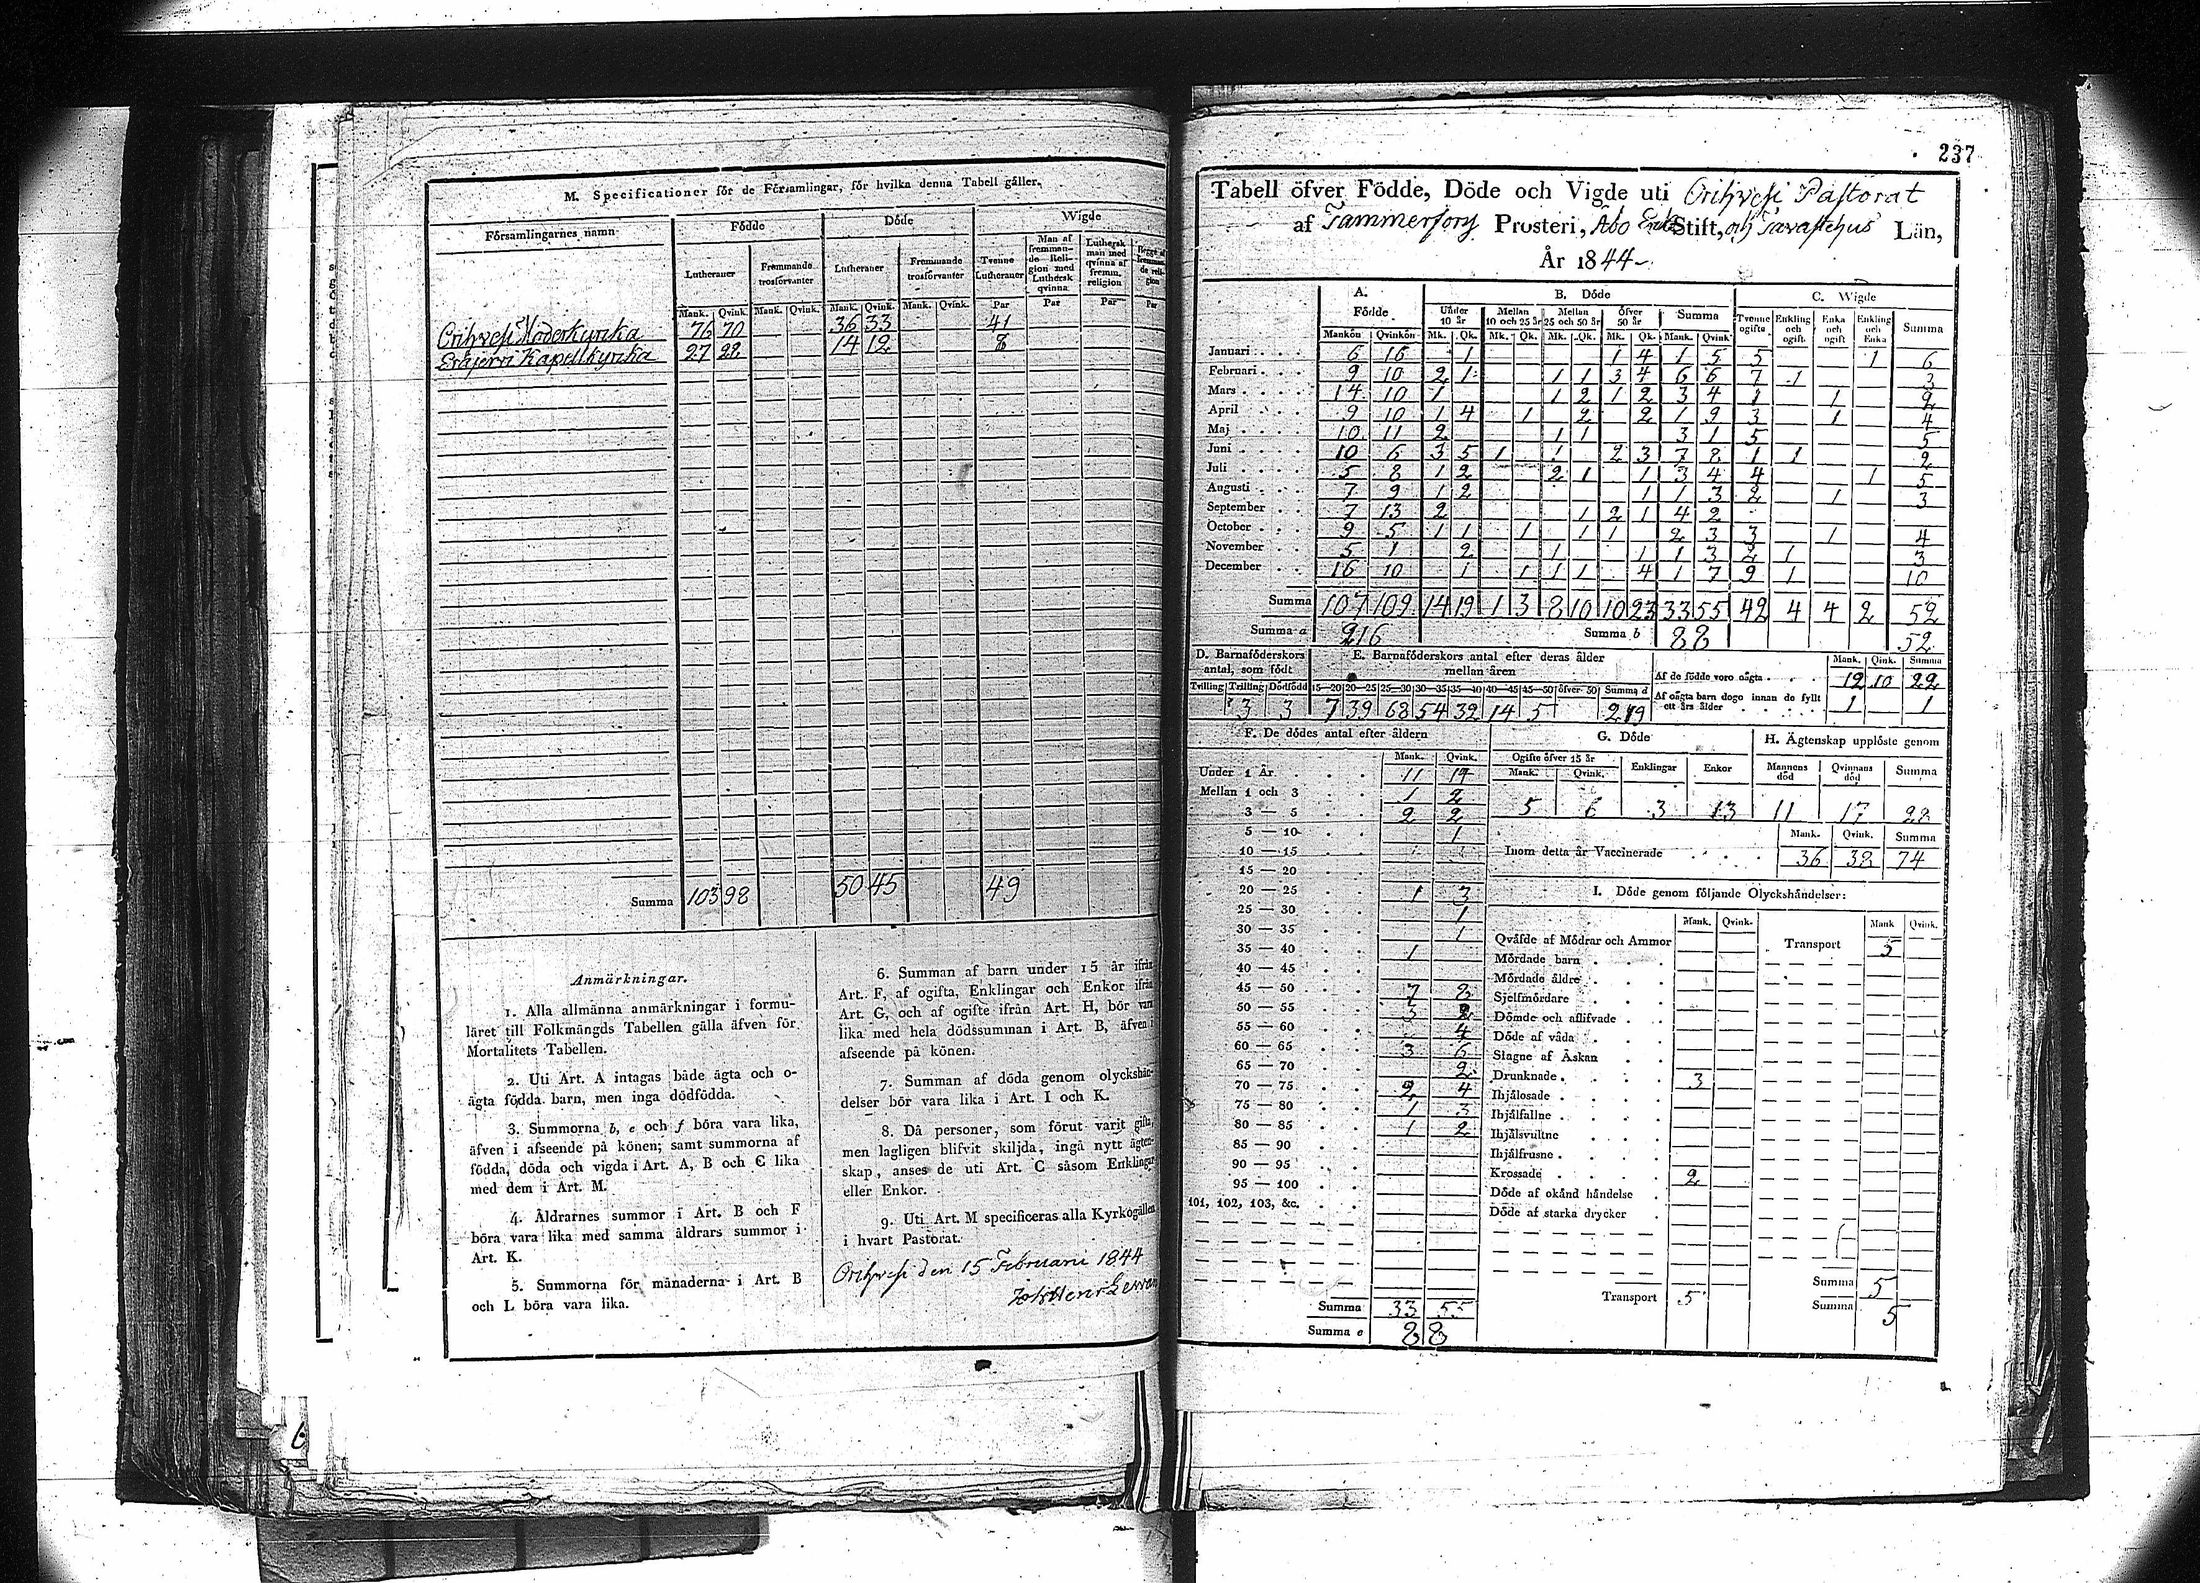 M. Specificationer för de Församlingar, för hvilka denna Tabell gäller.
Församlingarnes namn Födde Döde Wigde
Lutheraner Fremmande trosförvanter Lutheraner Fremmande trosförvanter Tvenne Lutheraner Man af fremmande Religion med Luthersk qvinna Luthersk man med qvinna af fremm. religion
Mank. Qvink. Mank. Qvink. Mank. Qvink. Mank. Qvink. Par Par Par Par
Orihvesi Moderkyrka 76 70 36 33 41
Erajervi Kapellkyrka 27 28 14 12 8
Summa 103 98 50 45 49
Anmärkningar.
1. Alla allmänna anmärkningar i formu-
läret till Folkmängds Tabellen gälla äfven för
Mortalitets Tabellen.
2. Uti Art. A intagas både ägta och o-
ägta födda barn, men inga dödfödda.
3. Summorna b, e och f böra vara lika,
äfven i afseende på könen; samt summorna af
födda, döda och vigda i Art. A, B och C lika
med dem i Art. M.
4. Åldrarnes summor i Art. B och F
böra vara lika med samma åldrars summor i
Art. K.
5. Summorna för månaderna i Art. B
och L böra vara lika.
6. Summan af barn under 15 år ifrån
Art. F, af ogifta, Enklingar och Enkor ifrån
Art. G, och af ogifte ifrån Art. H, bör vara
lika med hela dödssumman i Art. B, äfven i
afseende på könen.
7. Summan af döda genom olyckshän-
delser bör vara lika i Art. I och K.
8. Då personer, som förut varit gifta,
men lagligen blifvit skiljda, ingå nytt ägten-
skap, anses de uti Art. C såsom Enklingar
eller Enkor.
9. Uti Art. M specificeras alla Kyrkogällen
i hvart Pastorat.
Orihvesi den 15 Februarii 1844
237
Tabell öfver Födde, Döde och Vigde uti Orihvesi Pastorat
af Tammerfors Prosteri, Åbo Erke Stift, och Tavastehus Län,
År 1844
A. Födde B. Döde C. Wigde
Under 10 år Mellan 10 och 25 år Mellan 25 och 50 år Öfver 50 år Summa Tvenne ogifta Enkling och ogift Enka och ogift Enkling och Enka Summa
Mankön Qvinkön Mk. Qk. Mk. Qk. Mk. Qk. Mk. Qk. Mank. Qvink
Januari 6 16 1 1 4 1 5 5 1 6
Februari 9 10 2 1 1 1 3 4 6 6 7 1 3
Mars 14 10 1 1 2 1 2 3 4 1 1 2
April 9 10 1 4 1 2 2 1 9 3 1 4
Maj 10 11 2 1 1 3 1 5 5
Juni 10 6 3 5 1 1 2 3 7 8 1 1 2
Juli 5 8 1 2 2 1 1 3 4 4 1 5
Augusti 7 9 1 2 1 1 3 2 1 3
September 7 13 2 1 2 1 4 2
October 9 5 1 1 1 1 1 2 3 3 1 4
November 5 1 2 1 1 1 3 2 1 3
December 16 10 1 1 1 1 4 1 7 9 1 10
Summa 107 109 14 19 1 3 8 10 10 23 33 55 42 4 4 2 52
Summa a 216 Summa b 88 52
D. Barnaföderskors antal, som födt
Tvilling Trilling Dödfödd
3 3
E. Barnaföderskors antal efter deras ålder mellan åren
15—20 20—25 25—30 30—35 35—40 40—45 45—50 öfver 50 Summa d
7 39 68 54 32 14 5 219
Mank. Qink. Summa
Af de födde voro oägta 12 10 22
Af oägta barn dogo innan de fyllt ett års ålder 1 1
F. De dödes antal efter åldern
Mank. Qvink.
Under 1 År 11 14
Mellan 1 och 3 1 2
3 — 5 2 2
5 — 10 1
10 — 15
15 — 20
20 — 25 1 3
25 — 30 1
30 — 35 1
35 — 40 1
40 — 45
45 — 50 7 8
50 — 55 3 2
55 — 60 4
60 — 65 3 6
65 — 70 2
70 — 75 2 4
75 — 80 1 3
80 — 85 1 2
85 — 90
90 — 95
95 — 100
101, 102, 103, &c.
Summa 33 55
Summa e 88
G. Döde
Ogifte öfver 15 år Enklingar Enkor
Mank. Qvink.
5 6 3 13
H. Ägtenskap upplöste genom
Mannens död Qvinnans död Summa
11 17 28
Mank. Qvink. Summa
Inom detta år Vaccinerade 36 38 74
I. Döde genom följande Olyckshändelser:
Mank. Qvink. Mank Qvink.
Qväfde af Mödrar och Ammor Transport 5
Mördade barn
Mördade äldre
Sjelfmördare
Dömde och aflifvade
Döde af våda
Slagne af Åskan
Drunknade 3
Ihjälosade
Ihjälfallne
Ihjälsvultne
Ihjälfrusne
Krossade 2
Döde af okänd händelse
Döde af starka drycker
Transport 5
Summa 5
Summa 5